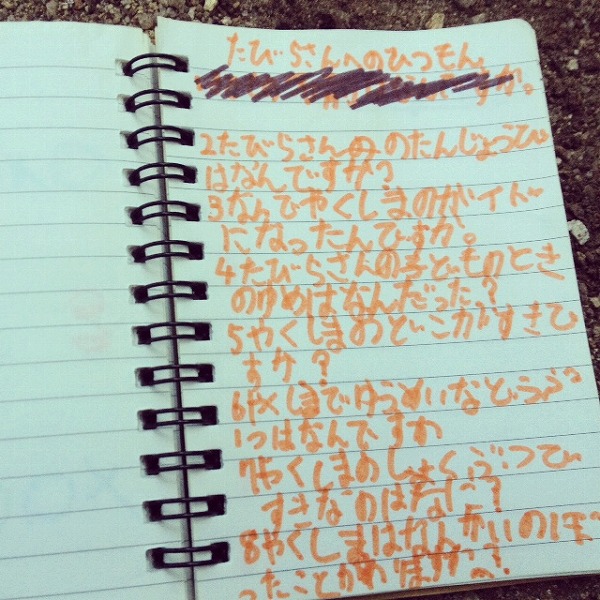 たびらさんへのひつもん
すか。
2たびらさんの のたんじょうひ
はなんですか?
3なんでやくしまのガイド
になったんですか。
4たびらさんの子どものとき
のゆめはなんだった?
5やくしまのどこがすきで
すか?
6やくしまでゆうめいなどうぶ
つはなんですか
7やくしまのしょくぶつで
すきなのはなに?
8やくしまはなんかいのぼ
ったことがありますか?